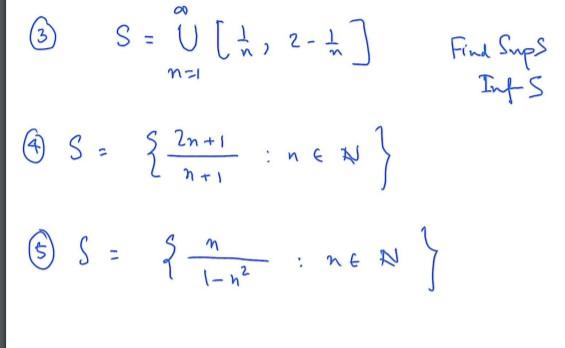 ③ S = ∞⋃n=1 [1/n, 2 - 1/n] Find Sup S
Inf S
④ S = { 2n+1/n+1 : n ∈ ℕ }
⑤ S = { n/1-n² : n ∈ ℕ }